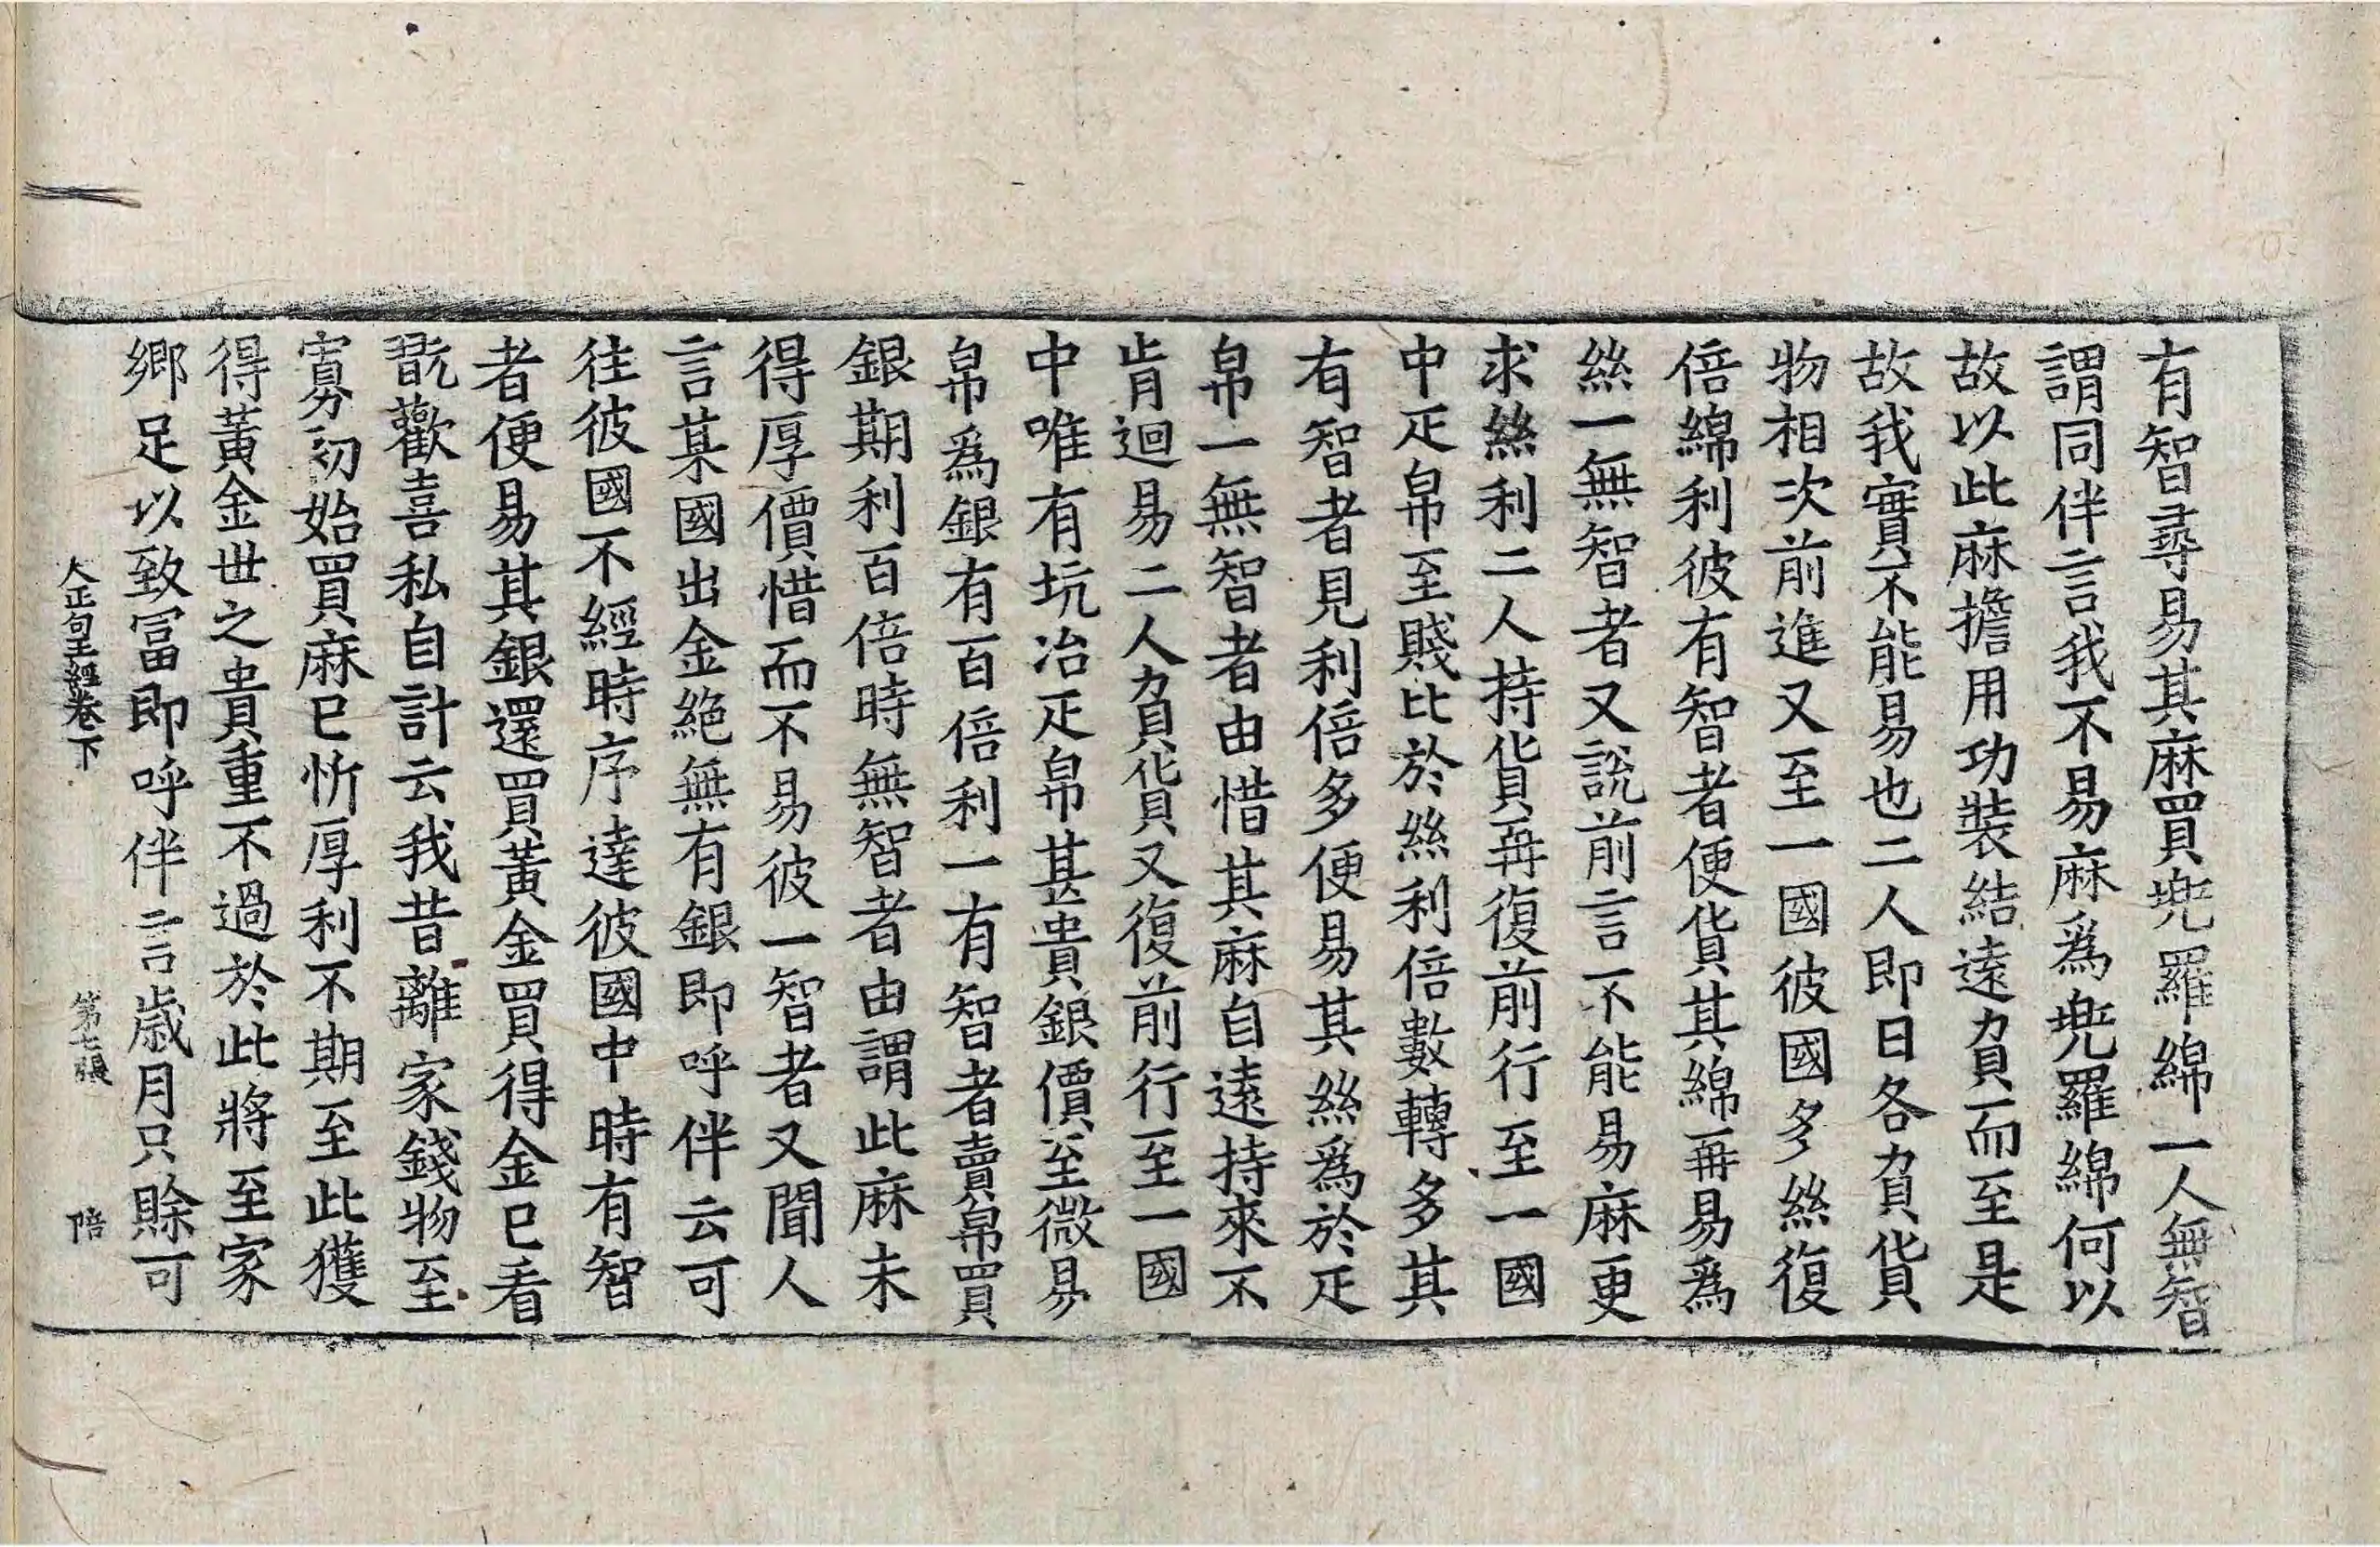 有智尋易其麻買兠羅綿一人無智
謂同伴言我不易麻爲兠羅綿何以
故以此麻擔用功装結遠負而至是
故我實不能易也二人即日各負貨
物相次前進又至一國彼國多絲復
倍綿利彼有智者便貨其綿再易爲
絲一無智者又說前言不能易麻更
求絲利二人持貨再復前行至一國
中疋帛至賤比於絲利倍數轉多其
有智者見利倍多便易其絲爲於疋
帛一無智者由惜其麻自遠持來不
肯迴易二人負貨又復前行至一國
中唯有坑冶疋帛甚貴銀價至微易
帛爲銀有百倍利一有智者賣帛買
銀期利百倍時無智者由謂此麻未
得厚價惜而不易彼一智者又聞人
言某國出金絶無有銀即呼伴云可
往彼國不經時序達彼國中時有智
者便易其銀還買黃金買得金已看
翫歡喜私自計云我昔離家錢物至
寡初始買麻已忻厚利不期至此獲
得黃金世之貴重不過於此將至家
鄉足以致冨即呼伴言歳月只賒可
大正句王經卷下 第七張 陪